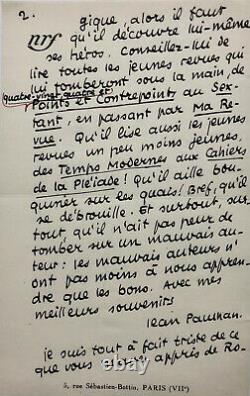 2.
nrf
gique, alors il faut
qu'il découvre lui-même
ses héros. Conseillez-lui de
lire toutes les jeunes revues qui
lui tomberont sous la main, de
quatre-vingt-quatre et
Points et Contrepoints, au Sex-
tant, en passant par Ma Re-
vue. Qu'il lise aussi les jeunes
revues un peu moins jeunes,
des Temps Modernes aux Cahiers
de la Pléiade! Qu'il aille bou-
quiner sur les quais! Bref, qu'il
se débrouille. Et surtout, sur-
tout, qu'il n'ait pas peur de
tomber sur un mauvais au-
teur: les mauvais auteurs n'
ont pas moins à nous appren-
dre que les bons. Avec mes
meilleurs souvenirs
Jean Paulhan.
je suis tout à fait triste de ce
que vous appris de Ro-
5, rue Sébastien-Bottin, PARIS (VIIe)